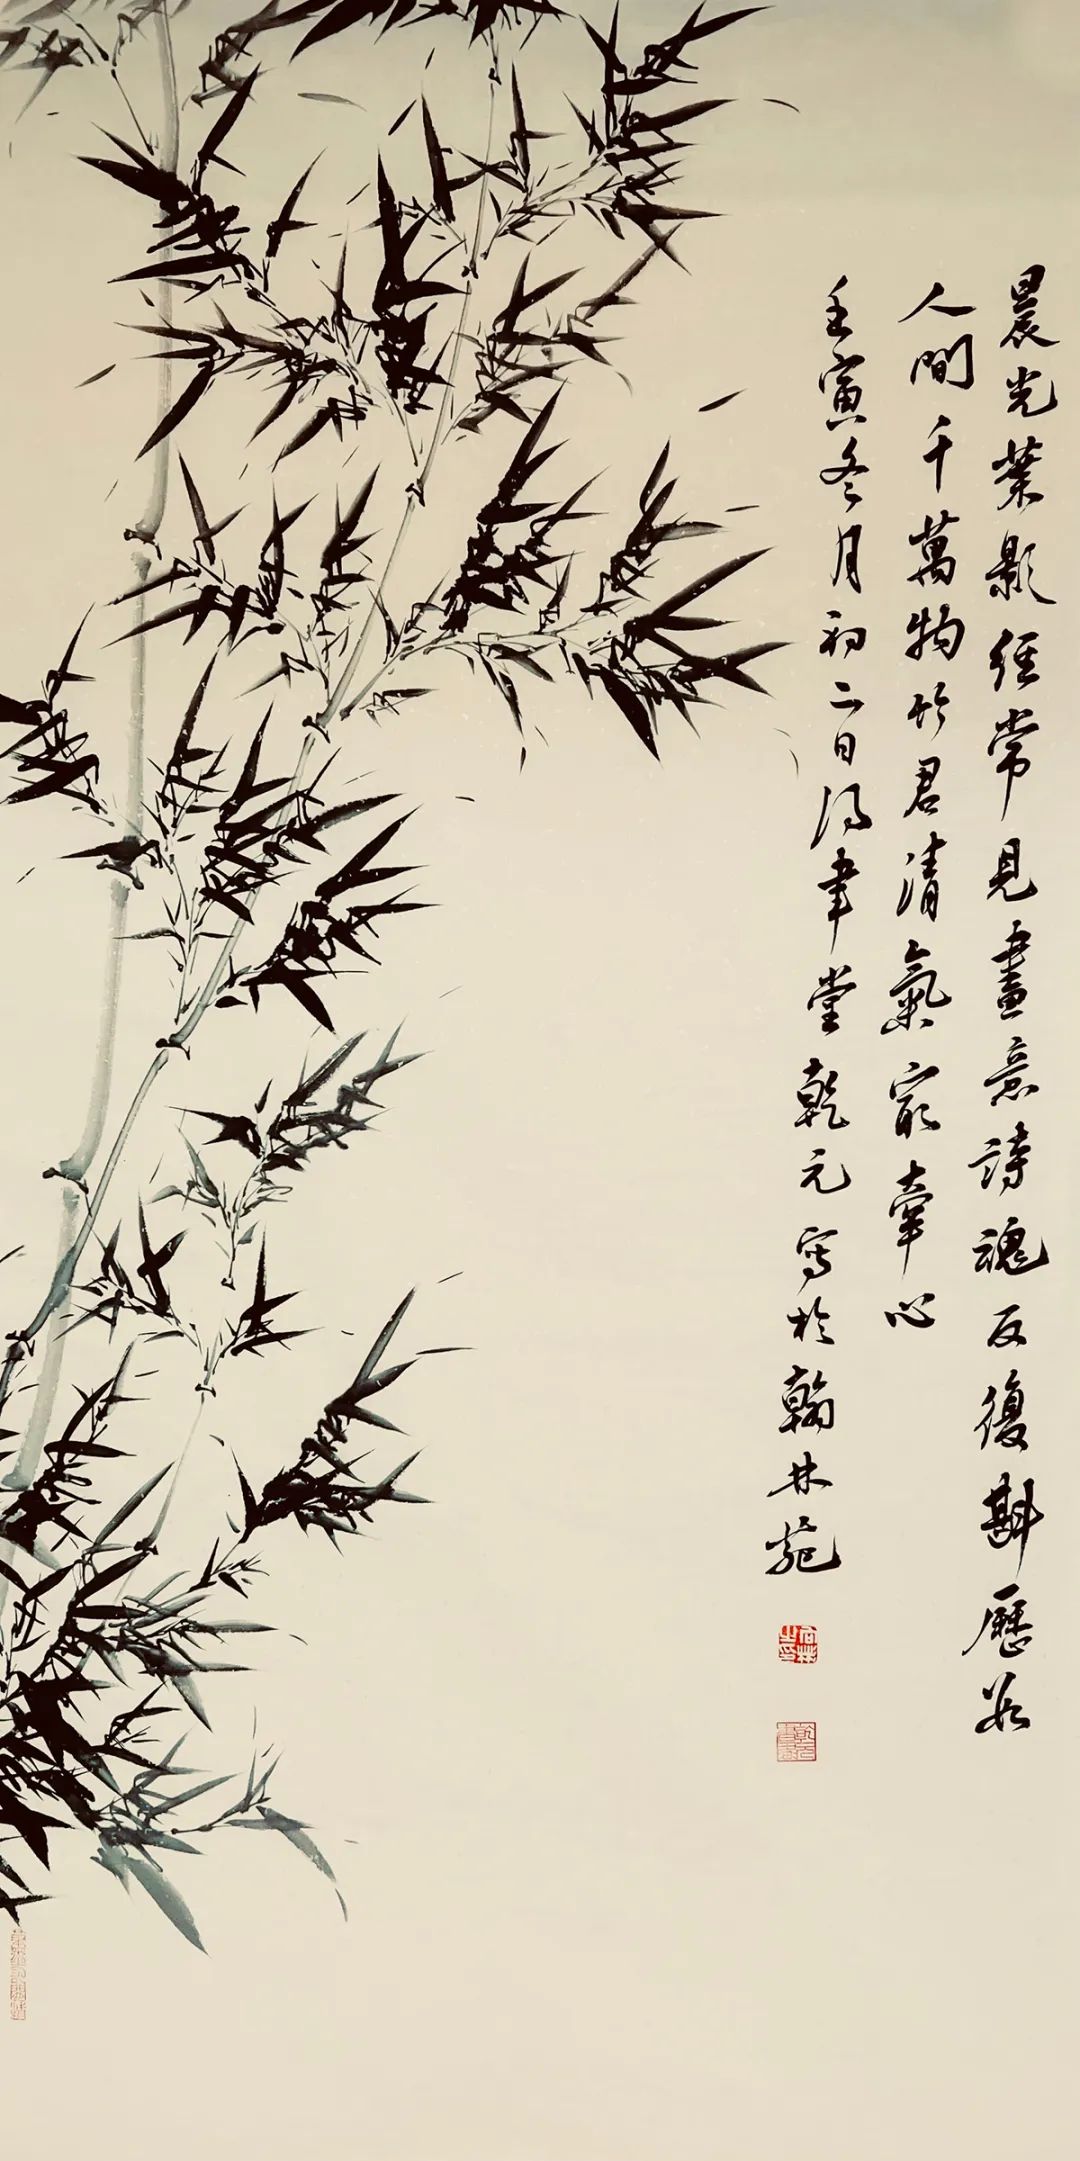 晨光葉影經常見畫意詩魂反復斟歷數
人間千萬物竹君清氣最牽心
壬寅冬月初二日得聿堂乾元寫於翰林苑